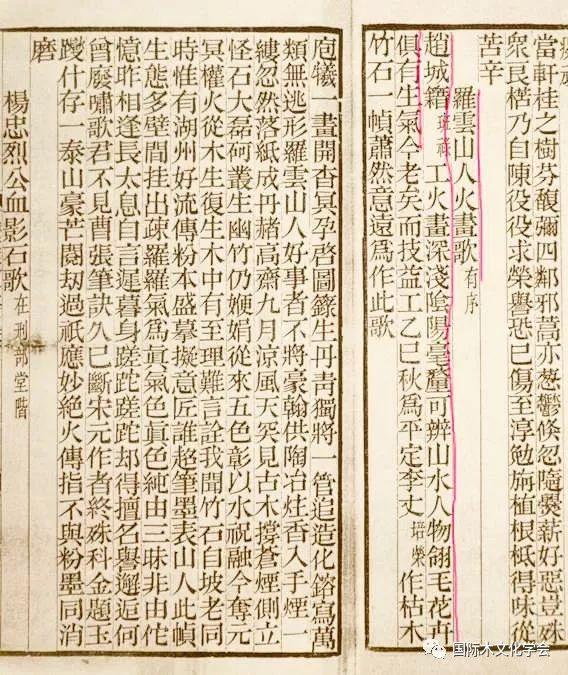 當軒桂之樹芬馥彌四鄰邪蒿亦葱鬱倏忽隨爨薪好惡豈殊
眾民楛乃自陳役役求榮譽恐已傷至淳勉旃植根柢得味從
苦辛
羅雲山人火畫歌 有序
趙城籍工火畫深淺陰陽毫釐可辨山水人物翎毛花卉
俱有生氣今老矣而技益工乙巳秋為平定李丈培榮作枯木
竹石一幀蕭然意遠為作此歌
庖犧一畫開杳冥孕啓圖籙生丹青獨將一管追造化鎔寫萬
類無逃形羅雲山人好事者不將豪翰供陶冶炷香入手煙一
縷忽然落紙成丹赭高齋九月涼風天突見古木撐蒼煙側立
怪石大磊砢叢生幽竹仍嬋娟從來五色彰以水祝融今奪元
冥權火從木生復生木中有至理難言詮我聞竹石自坡老同
時惟有湖州好流傳粉本盛摹擬意匠誰超筆墨表山人此幀
生態多壁間挂出疎羅羅氣為眞氣色眞色純由三昧非由佗
憶昨相逢長太息自言遲暮身蹉跎蹉跎却得擅名譽邂逅何
曾廢嘯歌君不見曹張筆訣久已斷宋元作者終殊科金題玉
躞什存一泰山豪芒閱劫過祇應妙絕火傳指不與粉墨同消
磨
楊忠烈公血影石歌 在刑部堂階
国际木文化学会